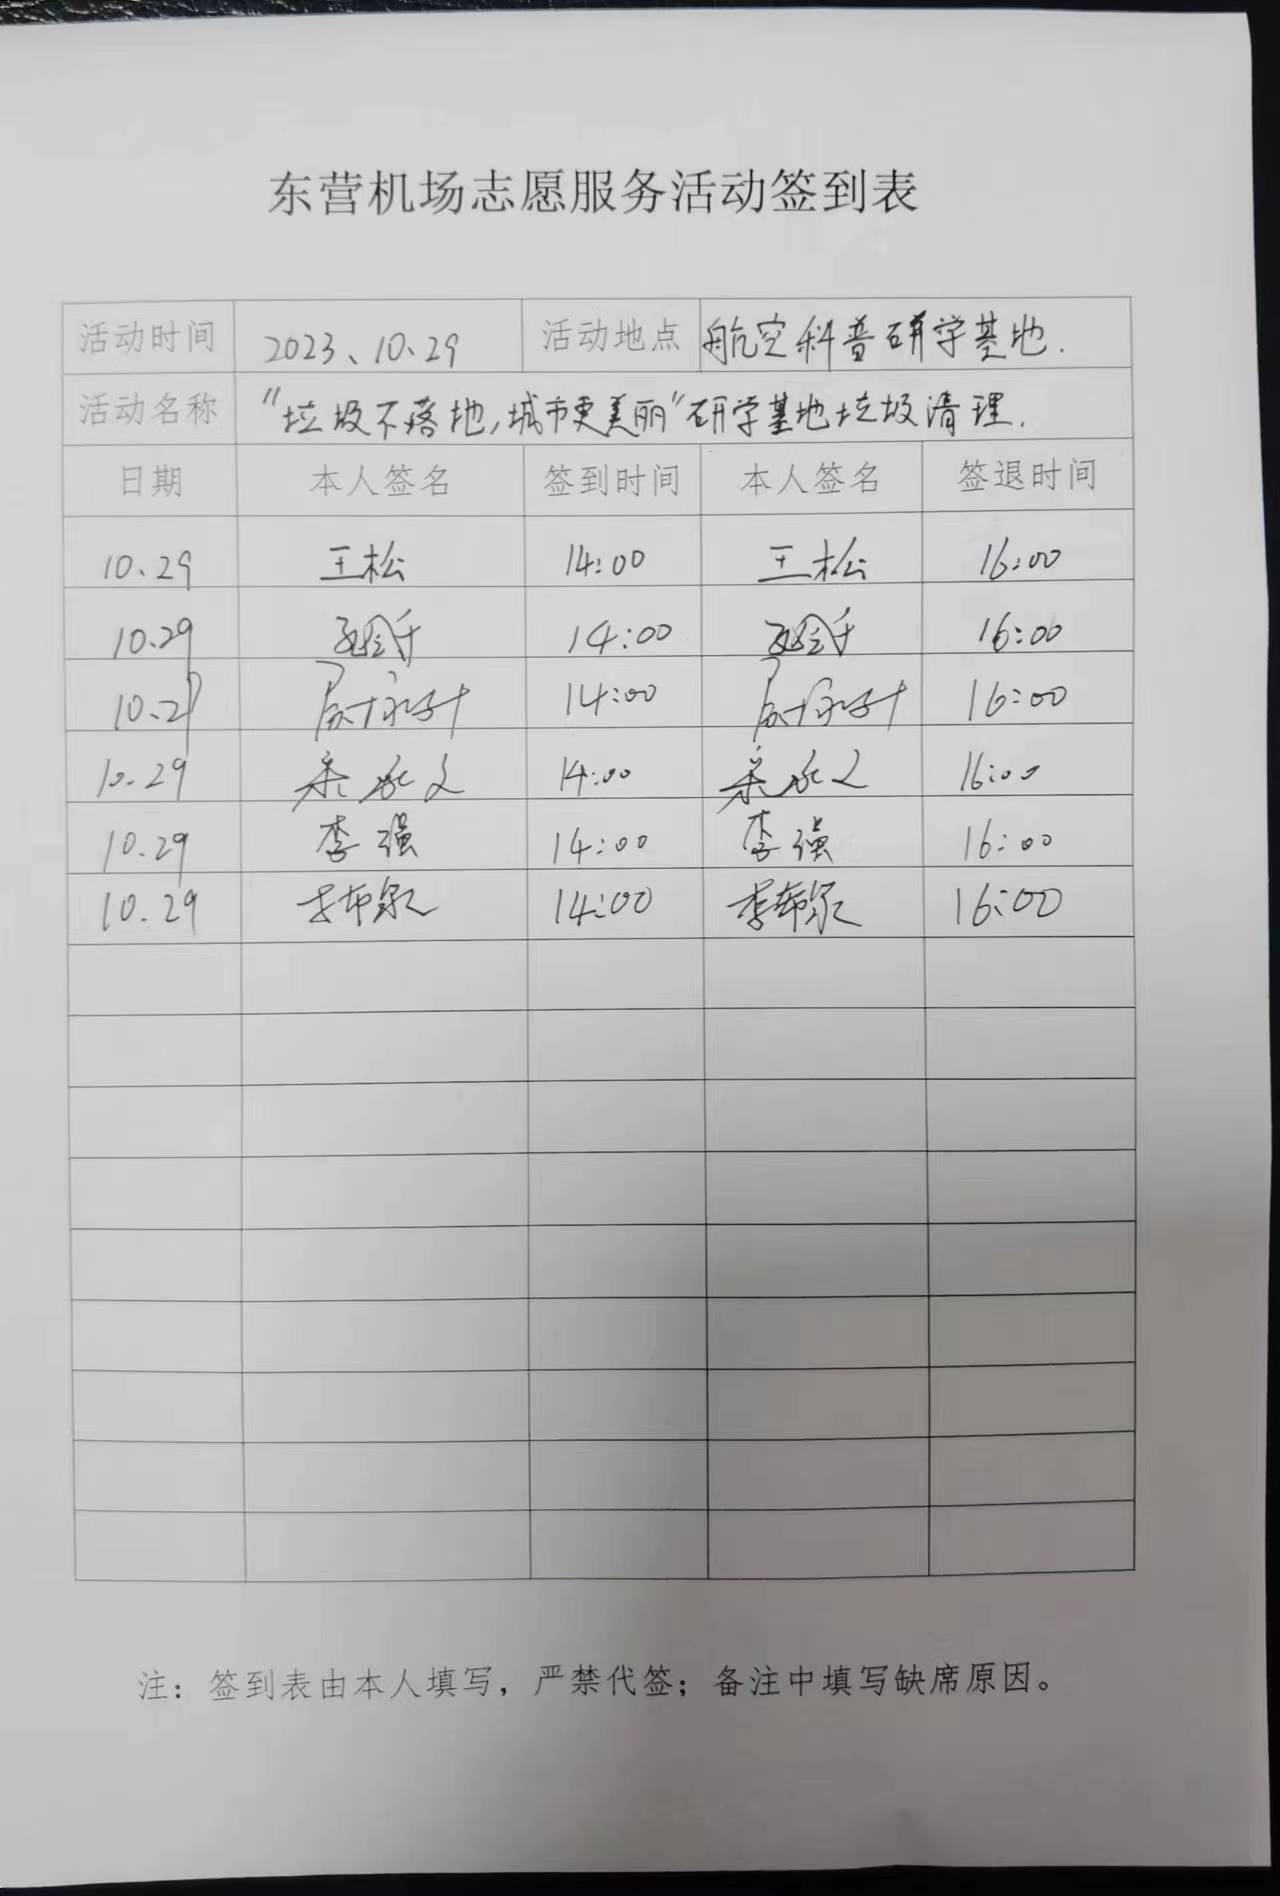 东营机场志愿服务活动签到表
活动时间 2023、10.29 活动地点 航空科普研学基地.
活动名称 “垃圾不落地,城市更美丽”研学基地垃圾清理.
日期 本人签名 签到时间 本人签名 签退时间
10.29 王松 14:00 王松 16:00
10.29 14:00 16:00
10.29 14:00 16:00
10.29 14:00 16:00
10.29 李强 14:00 李强 16:00
10.29 李希泉 14:00 李希泉 16:00
注：签到表由本人填写，严禁代签；备注中填写缺席原因。